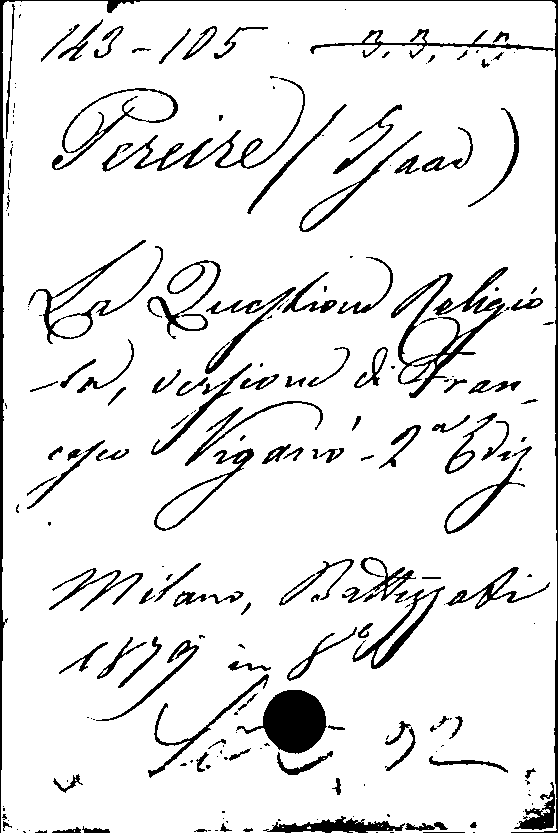 143-105 3.3.13
Pereire (Isaac)
La Questione Religio-
-sa, versione di Fran-
cesco Viganò - 2a Ediz
Milano, Battezzati
1879 in 8°
92